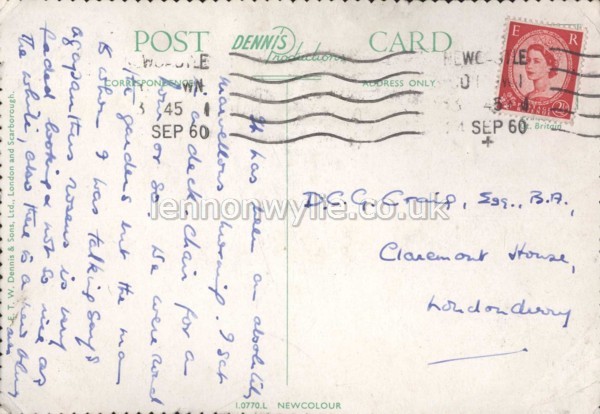 POST DENNIS Productions CARD
CORRESPONDENCE
ADDRESS ONLY
3 45
SEP 60
SEP 60
E R
Gt. Britain
It has been an absolutely
marvellous morning. I sat
in a deck-chair for a
hour or so. We were
gardens but the man
to whom I was talking says
agapanthus is very
faded looking & not so nice as
the white, also there is a new
D.C.G. Craig, Esq., B.A.,
Claremont House,
Londonderry
lennonwylie.co.uk
E. T. W. Dennis & Sons, Ltd., London and Scarborough.
L.0770.L NEWCOLOUR